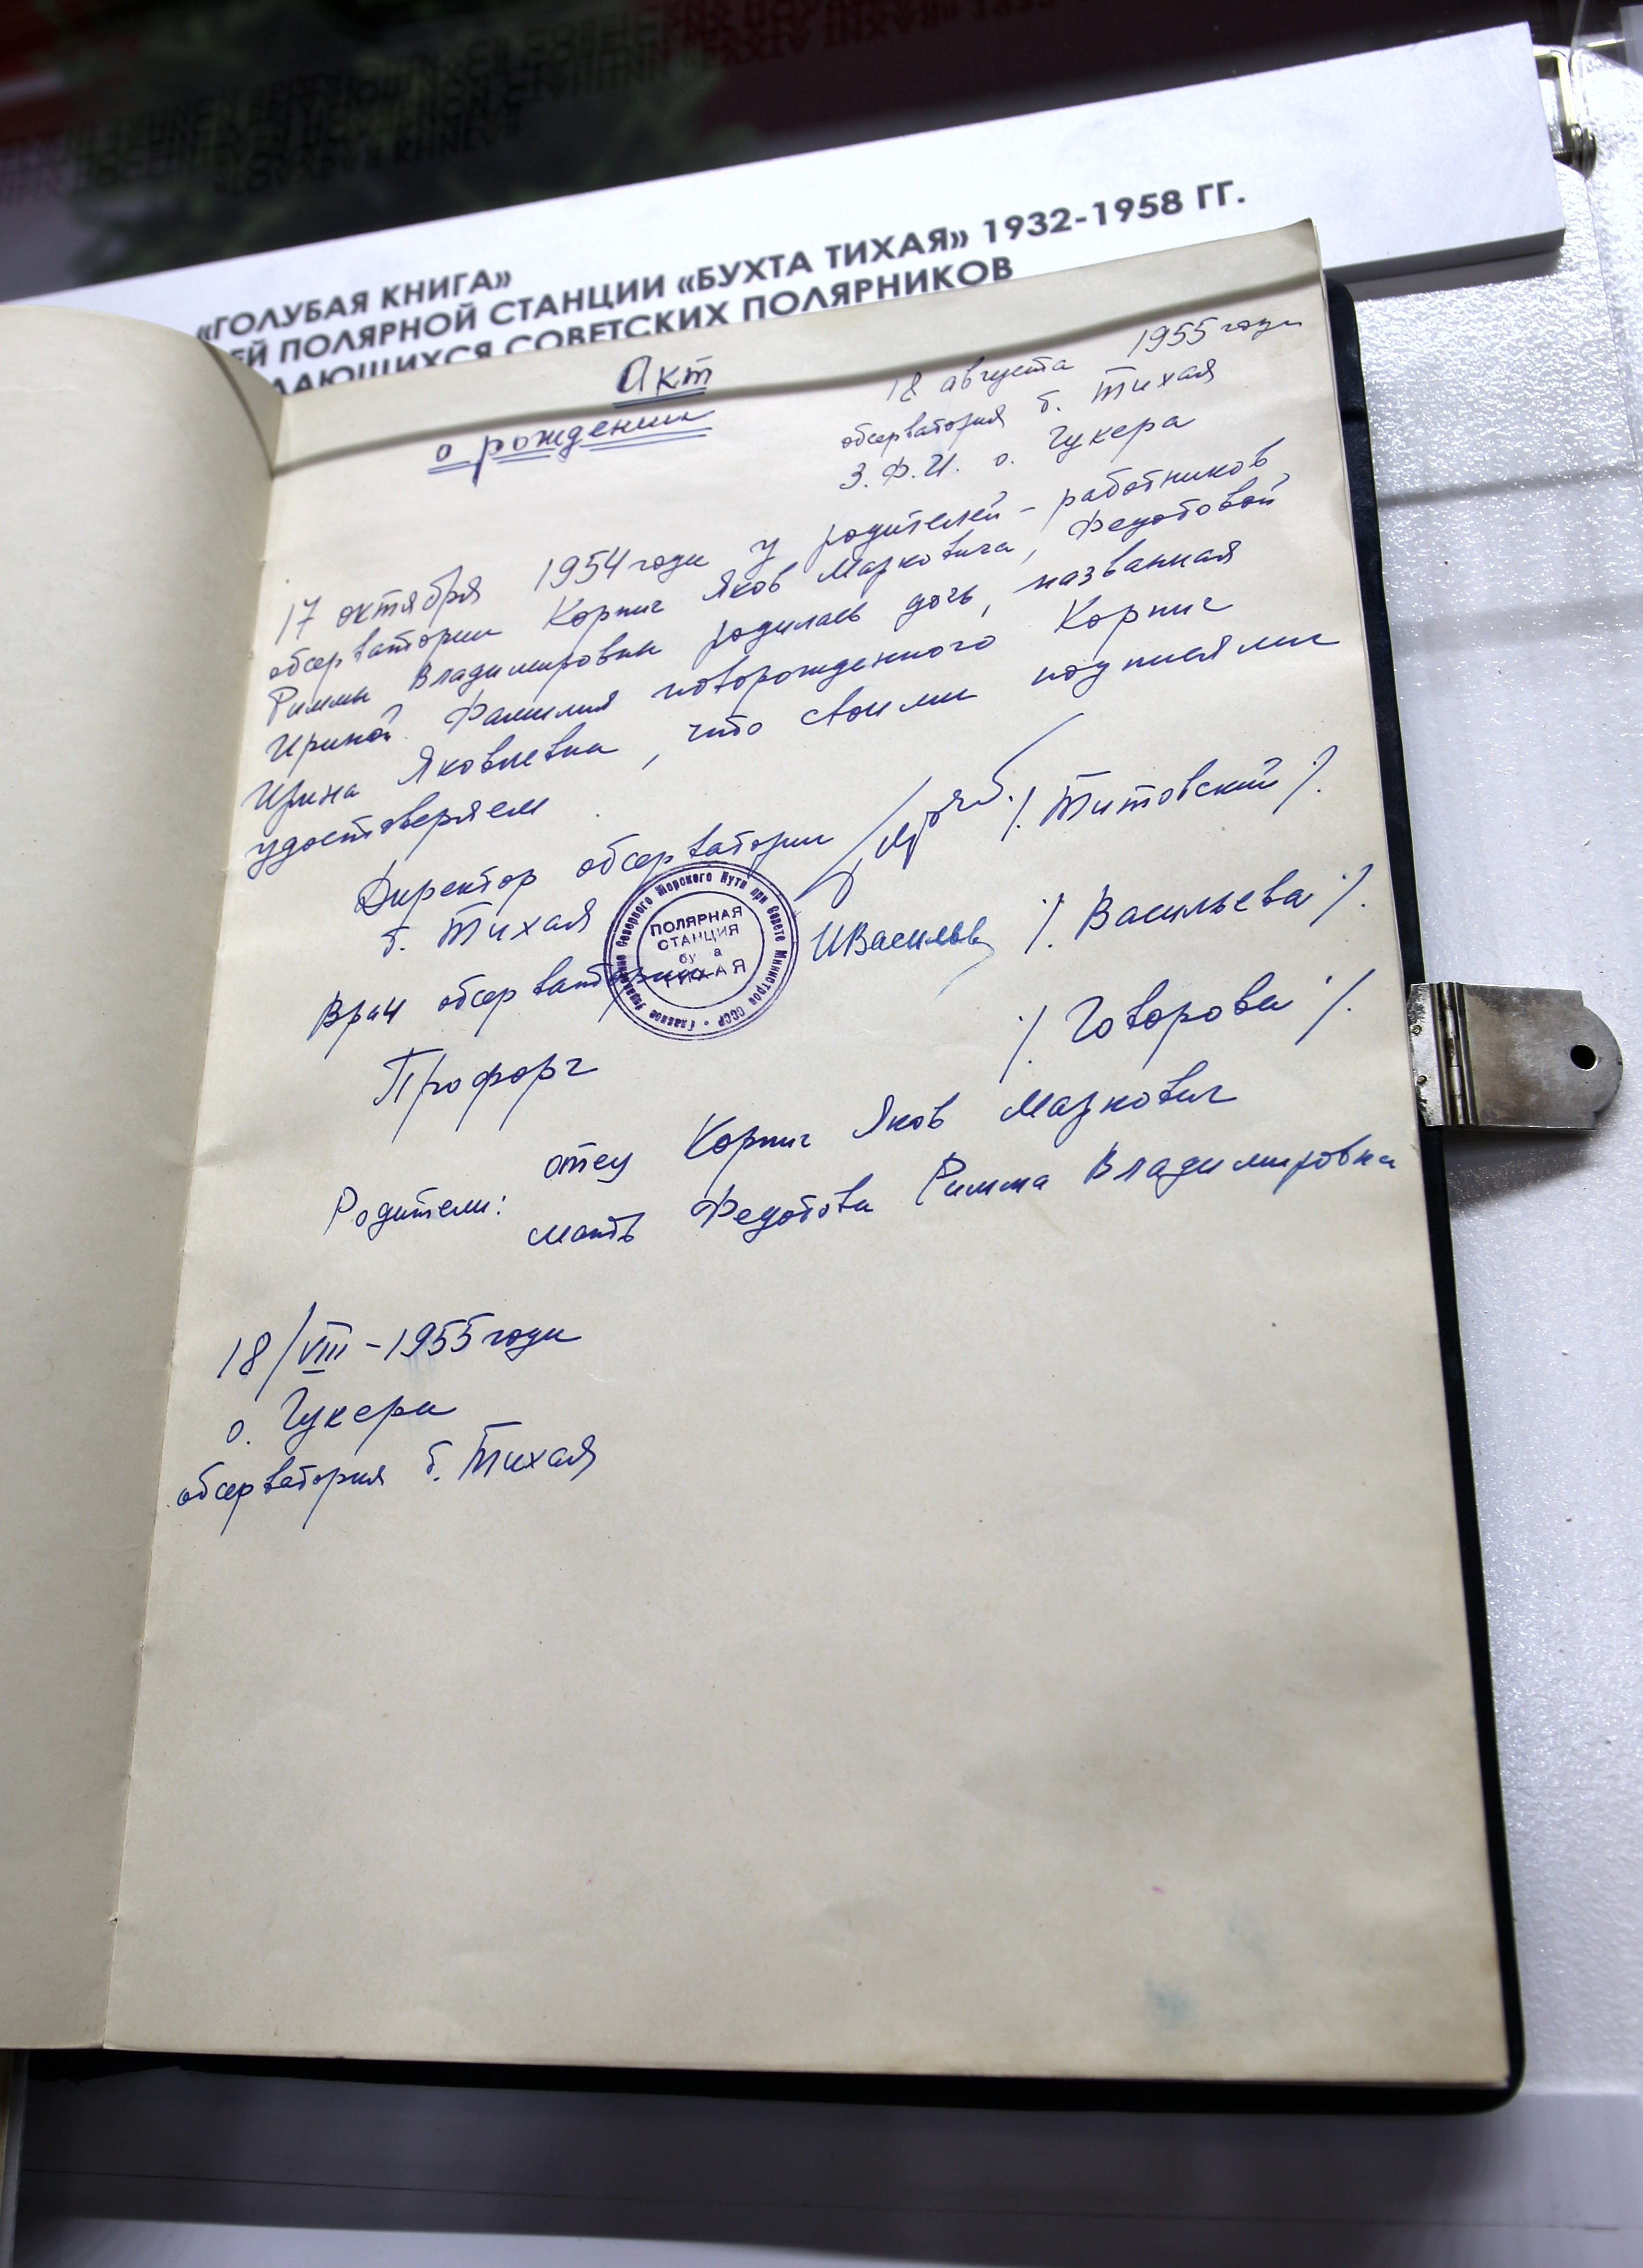 «ГОЛУБАЯ КНИГА»
ЕЙ ПОЛЯРНОЙ СТАНЦИИ «БУХТА ТИХАЯ» 1932-1958 ГГ.
ДАЮЩИХСЯ СОВЕТСКИХ ПОЛЯРНИКОВ
Акт
о рождении
18 августа 1955 года
обсерватория б. Тихая
З.Ф.И. о. Гукера
17 октября 1954 года у родителей - работников
обсерватории Корпич Яков Марковича, Федотовой
Риммы Владимировны родилась дочь, названная
Ириной. Фамилия новорожденного Корпич
Ирина Яковлевна, что своими подписями
удостоверяем
Директор обсерватории /Титовский/.
б. Тихая
Врач обсерватории ИВасильев /Васильева/.
Профорг /Говорова/.
Родители: отец Корпич Яков Маркович
мать Федотова Римма Владимировна
18/VIII - 1955 года
о. Гукера
обсерватория б. Тихая
Главное Управление Северного Морского Пути при Совете Министров СССР
ПОЛЯРНАЯ
СТАНЦИЯ
бу а
ТИХАЯ